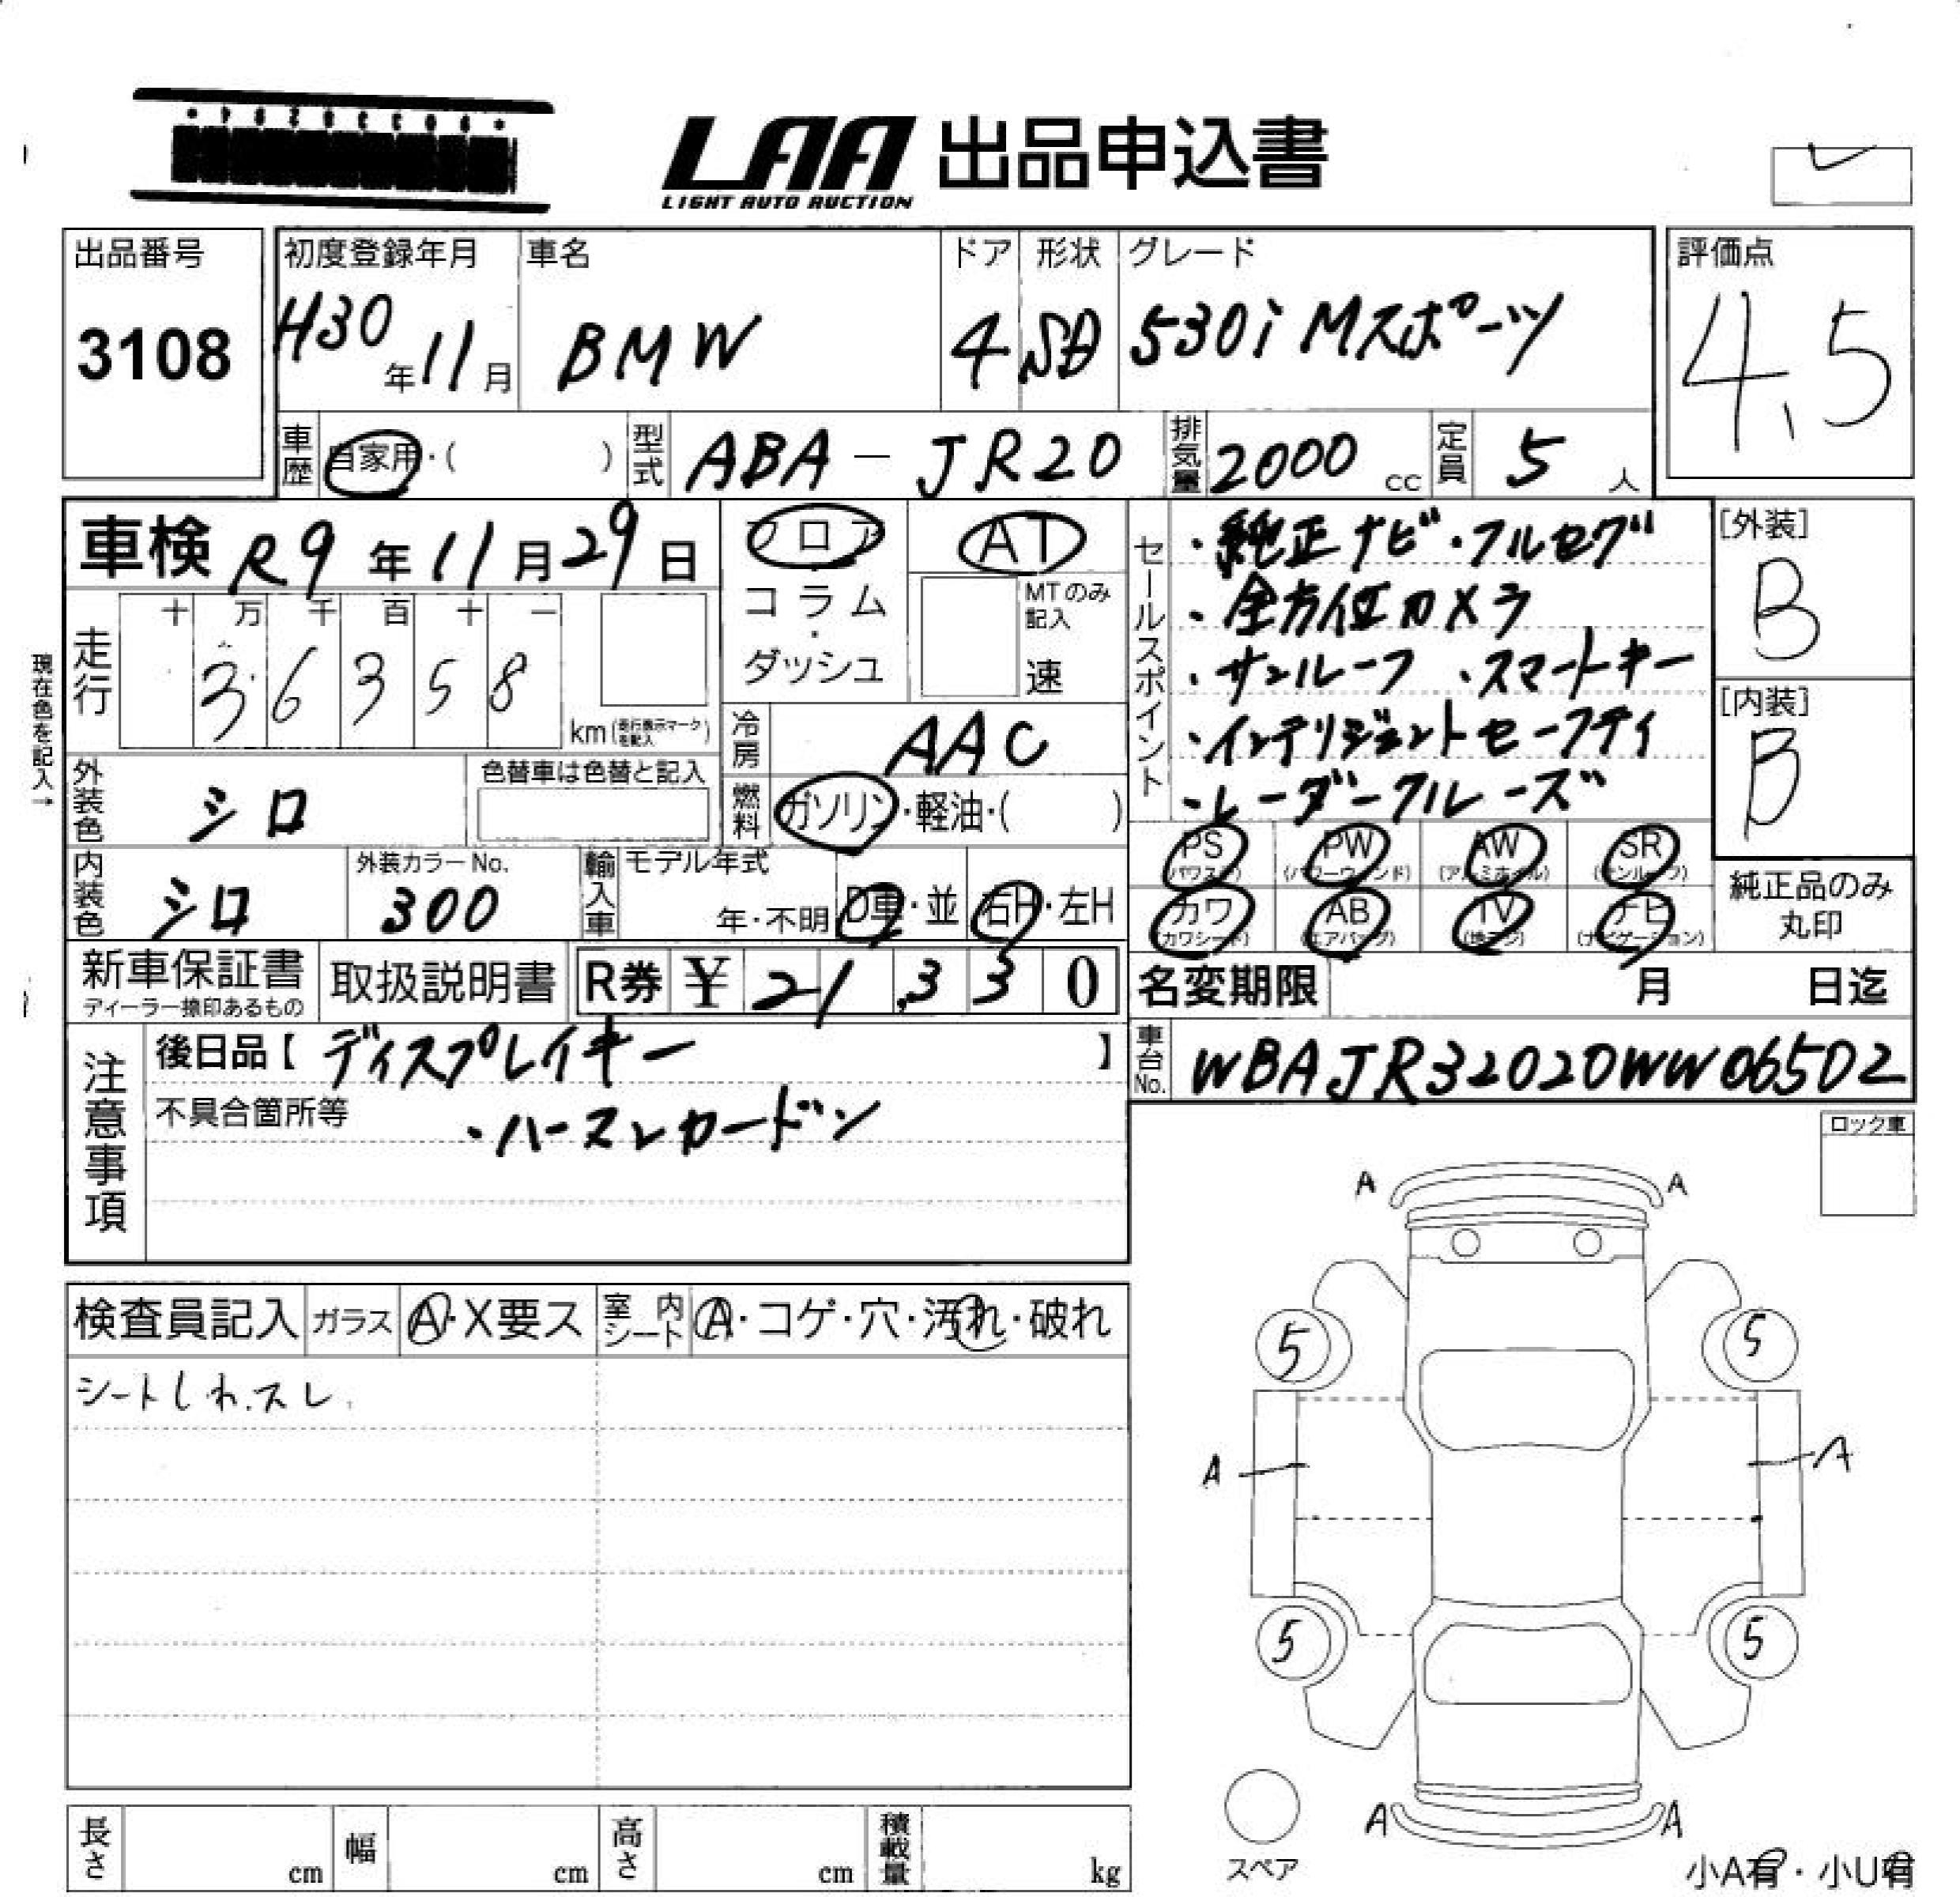 LAA 出品申込書
LIGHT AUTO AUCTION
出品番号 3108
初度登録年月 H30年11月
車名 BMW
ドア 4
形状 SD
グレード 530i Mスポーツ
評価点 4.5
車歴 自家用・( )
型式 ABA-JR20
排気量 2000 cc
定員 5 人
車検 R9年11月29日
フロア
コラム・ダッシュ
AT
MTのみ記入
速
セールスポイント
・純正ナビ・フルセグ
・全方位カメラ
・サンルーフ ・スマートキー
・インテリジェントセーフティ
・レーダークルーズ
[外装] B
[内装] B
現在色を記入→
走行 十 万 千 百 十 一
36358
km (走行表示マークを記入)
冷房 AAC
燃料 ガソリン・軽油・( )
外装色 シロ
色替車は色替と記入
内装色 シロ
外装カラーNo. 300
輸入車 モデル年式
年・不明 D車・並 右H・左H
PS (パワステ) PW (パワーウィンド) AW (アルミホイル) SR (サンルーフ)
カワ (カワシート) AB (エアバッグ) TV (地デジ) ナビ (ナビゲーション)
純正品のみ丸印
新車保証書
ディーラー捺印あるもの
取扱説明書
R券 ¥ 21,330
名変期限 月 日迄
車台No. WBAJR32020WW06502
注意事項
後日品【 ディスプレイキー 】
不具合箇所等
・ハーマンカードン
ロック車
A A
検査員記入 ガラス A・X要ス 室内シート A・コゲ・穴・汚れ・破れ
シートしわ.スレ
5 5
A A
5 5
A A
スペア
長さ cm 幅 cm 高さ cm 積載量 kg
小A有・小U有